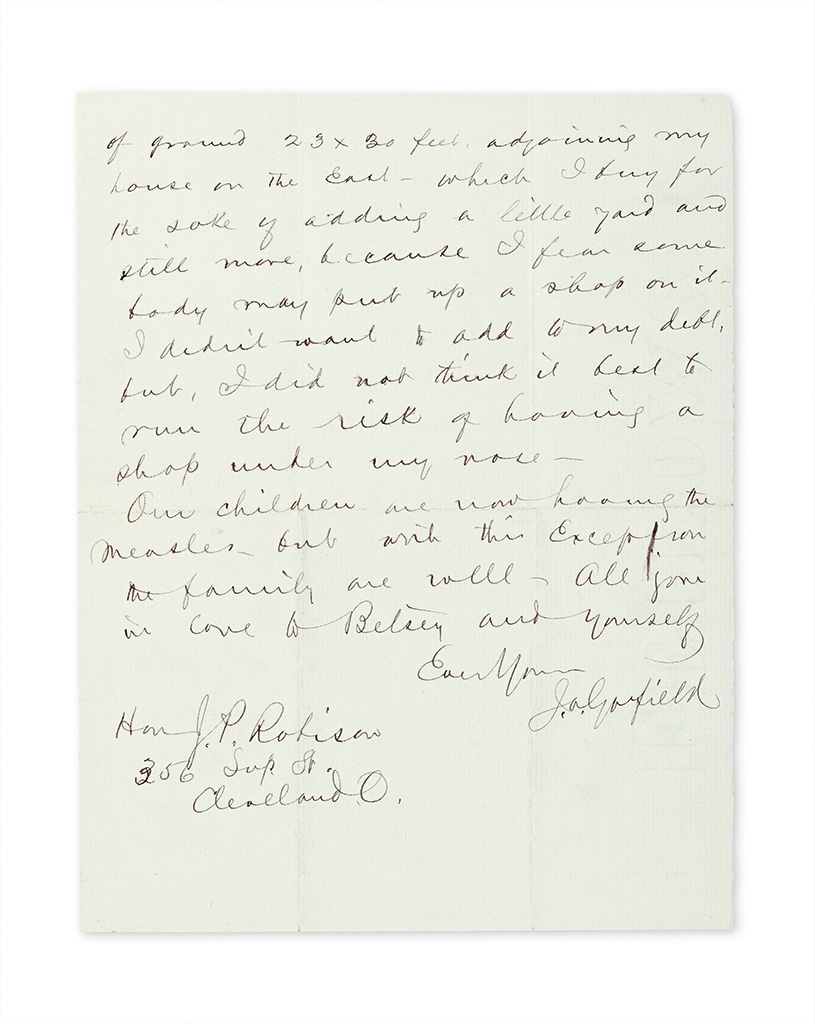 of ground 23 x 30 feet, adjoining my
house on the East – which I buy for
the sake of adding a little yard and
still more, because I fear some
body may put up a shop on it –
I didn't want to add to my debt,
but, I did not think it best to
run the risk of having a
shop under my nose –
Our children are now having the
measles – but with this Exception
the family are well – All join
in love to Betsey and yourself
Ever Yours
J.A. Garfield
Hon J. P. Robison
356 Sup. St.
Cleveland. O.